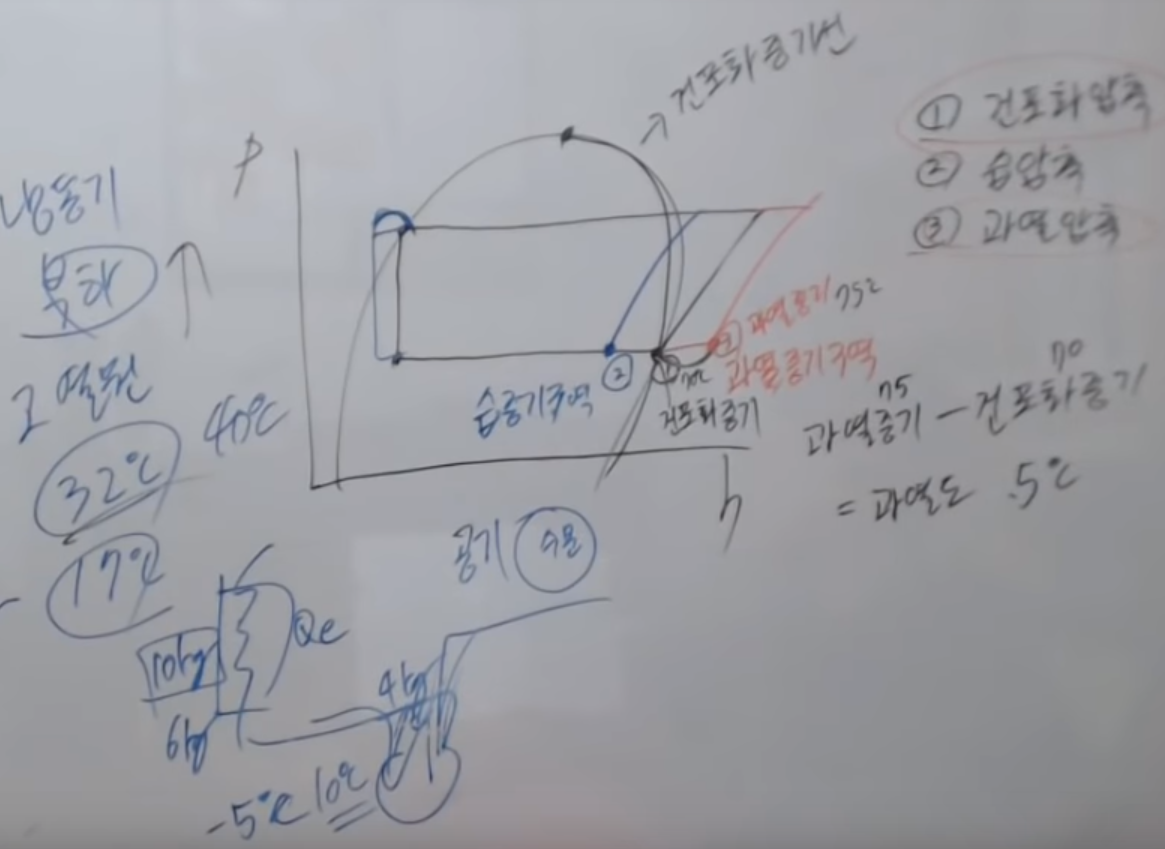 건포화증기선
① 건포화압축
② 습압축
③ 과열압축
P
냉동기
부하
고열원
32℃ 40℃
17℃
③ 과열증기 75℃
과열증기구역
② ①
습증기구역
건포화증기
75 70
과열증기 - 건포화증기
= 과열도 5℃
h
공기 수분
10kg
Qe
4kg
6kg
-5℃ 10℃